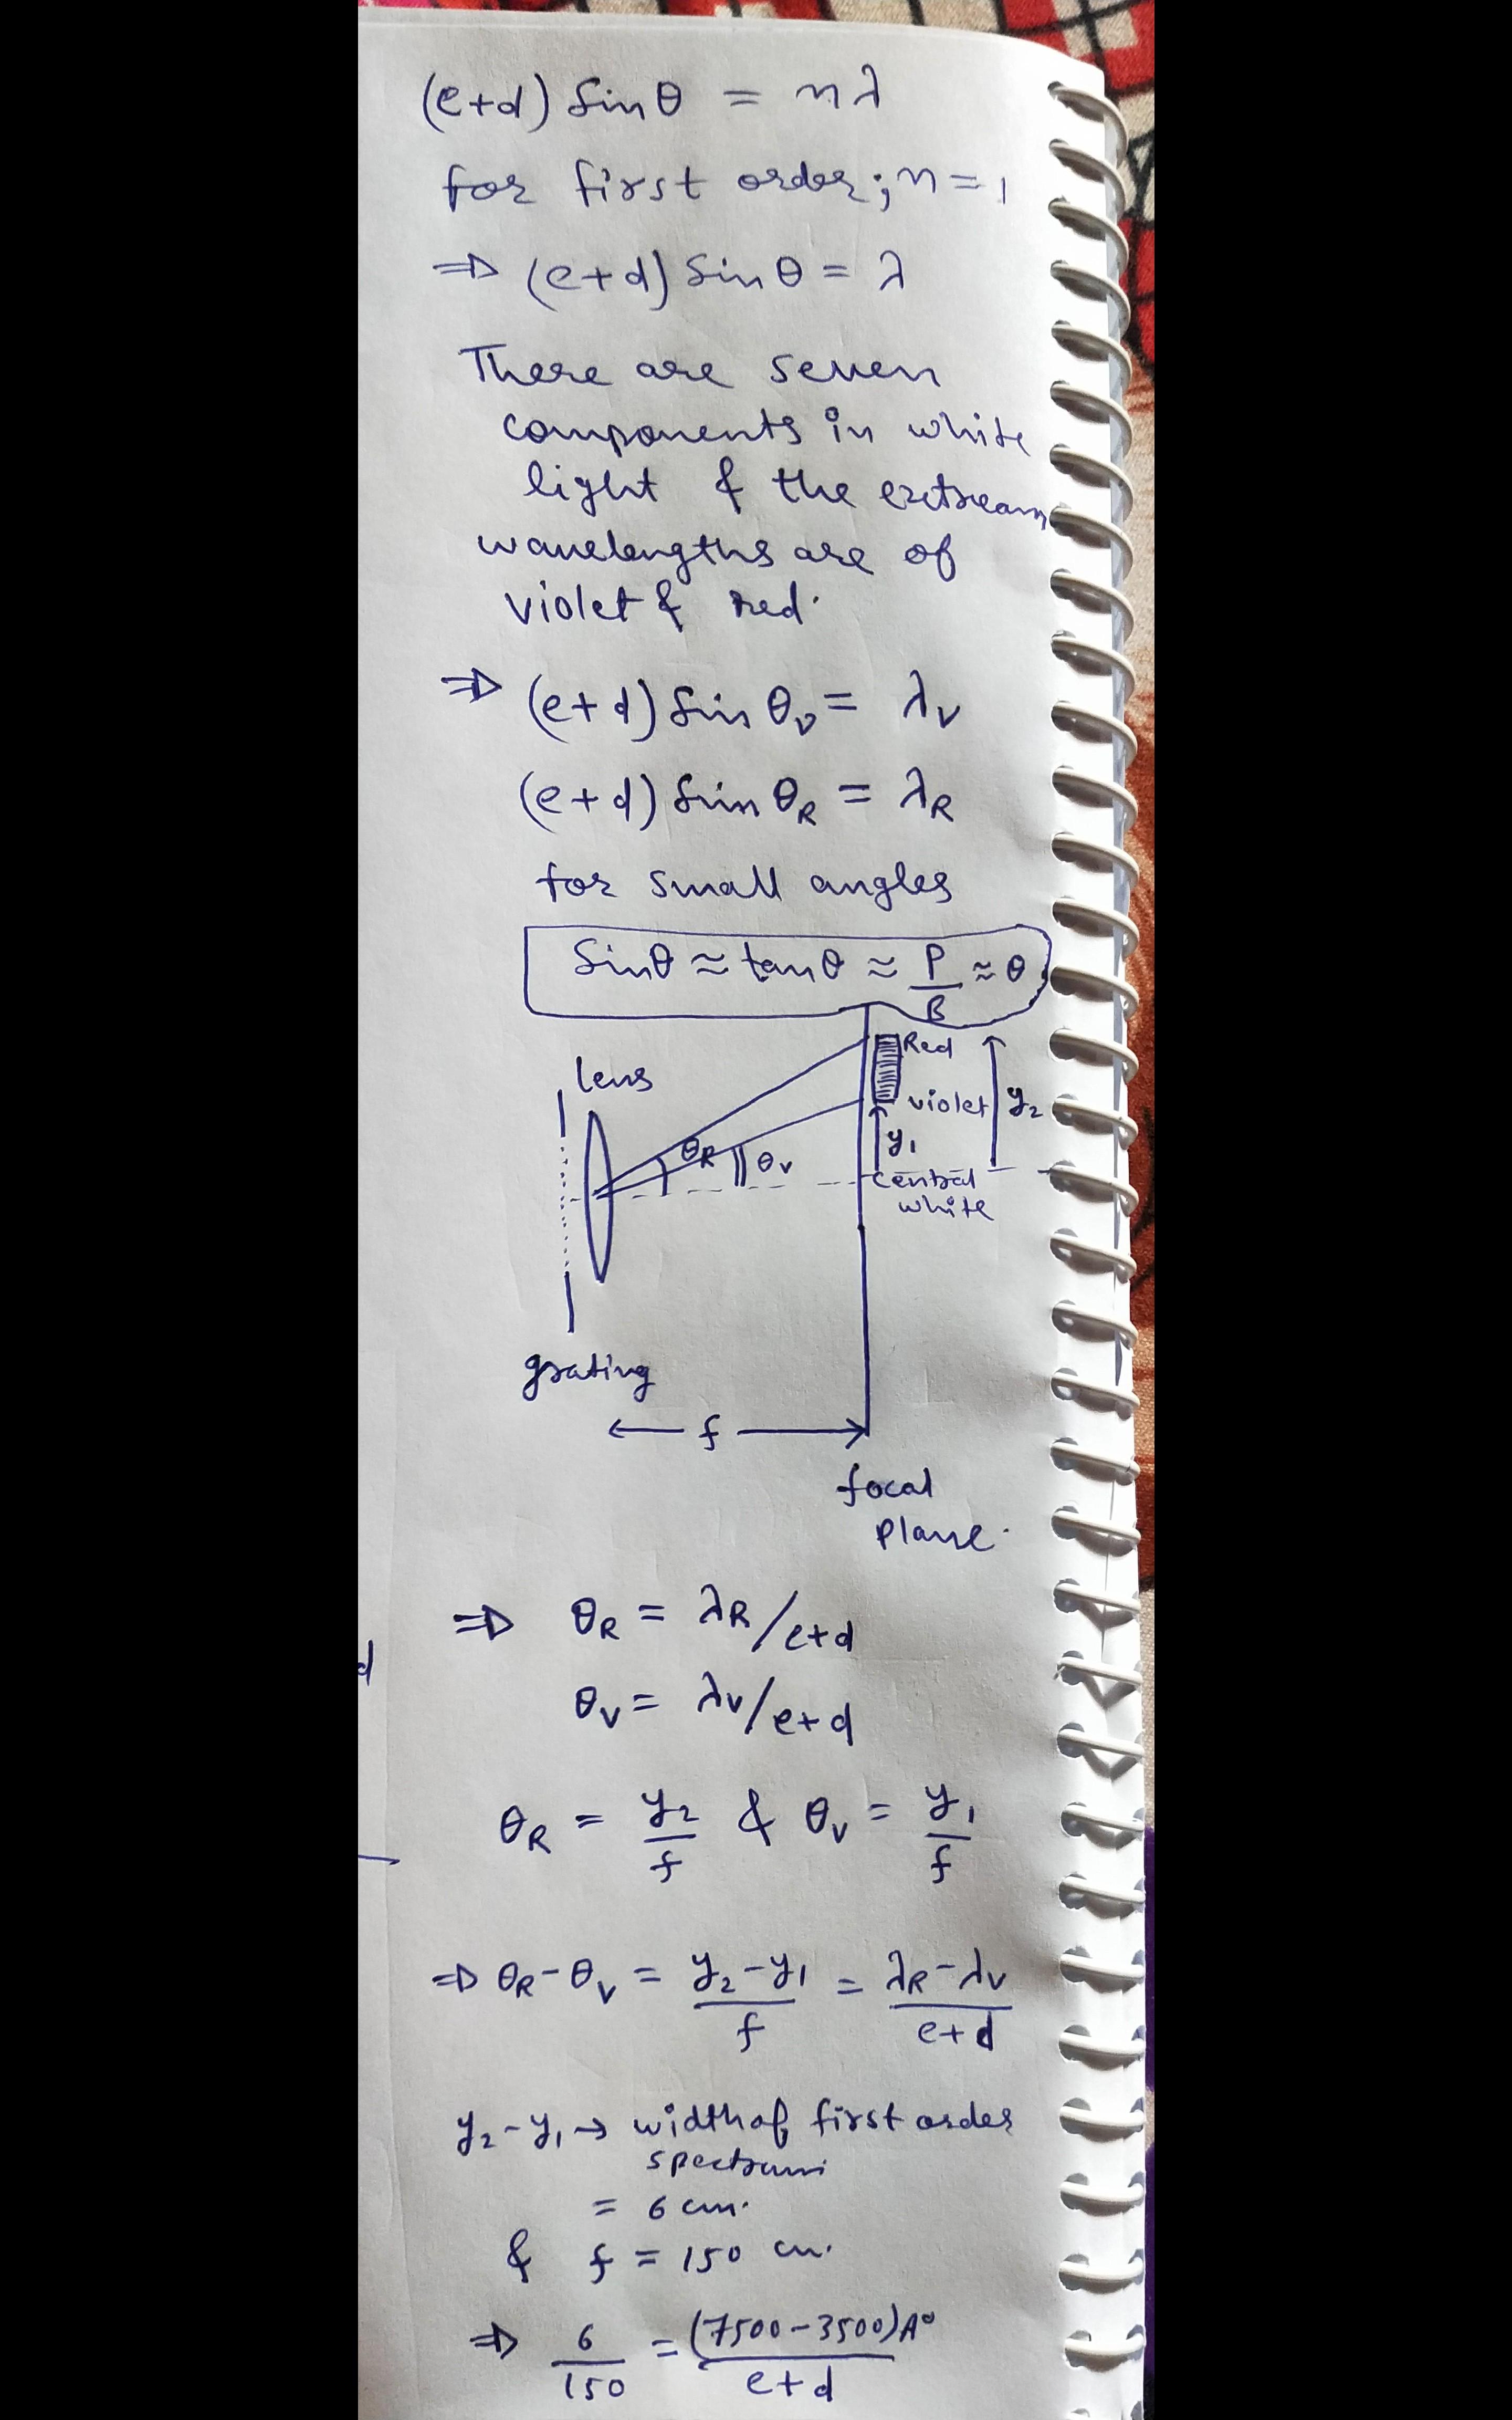 (e+d) Sin θ = nλ
for first order; n=1
⇒ (e+d) Sin θ = λ
There are seven
components in white
light & the
wavelengths are of
violet & red.
⇒ (e+d) Sin θv = λv
(e+d) Sin θR = λR
for small angles
Sinθ ≈ tanθ ≈ P/B ≈ θ
Red
lens
violet
y2
y1
θR
θv
central
white
grating
f
focal
plane.
⇒ θR = λR/e+d
θv = λv/e+d
d
θR = y2/f & θv = y1/f
⇒ θR-θv = y2-y1/f = λR-λv/e+d
y2-y1 → width of first order
spectrum
= 6 cm.
& f = 150 cm.
⇒ 6/150 = (7500-3500)A°/e+d